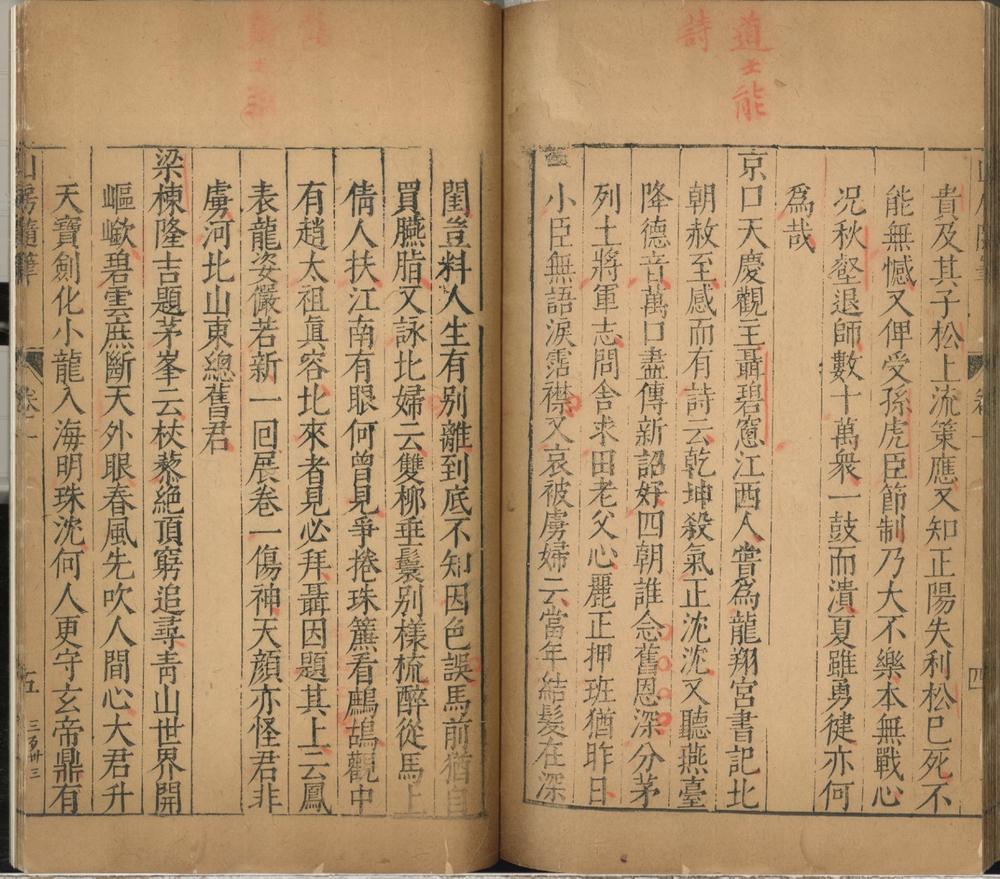 道士能
詩
貴及其子松上流策應又知正陽失利松已死不
能無憾又俾受孫虎臣節制乃大不樂本無戰心
况秋壑退師數十萬衆一鼓而潰夏雖勇徤亦何
爲哉
京口天慶觀主聶碧窻江西人嘗爲龍翔宮書記北
朝赦至感而有詩云乾坤殺氣正沈沈又聽燕臺
降德音萬口盡傳新詔好四朝誰念舊恩深分茅
列土將軍志問舍求田老父心麗正押班猶昨日
小臣無語淚霑襟又哀被虜婦云當年結髮在深
四
閨豈料人生有别離到底不知因色誤馬前猶自
買臙脂又詠北婦云雙柳垂鬟别樣梳醉從馬上
倩人扶江南有眼何曾見爭捲珠簾看鷓鴣觀中
有趙太祖眞容北來者見必拜聶因題其上云鳳
表龍姿儼若新一回展卷一傷神天顔亦怪君非
虜河北山東總舊君
梁棟隆吉題茅峯云杖藜絶頂窮追尋靑山世界開
嶇嶔碧雲庶斷天外眼春風先吹人間心大君升
天寶劍化小龍入海明珠沈何人更守玄帝鼎有
山房隨筆
卷一
五
三百卅三